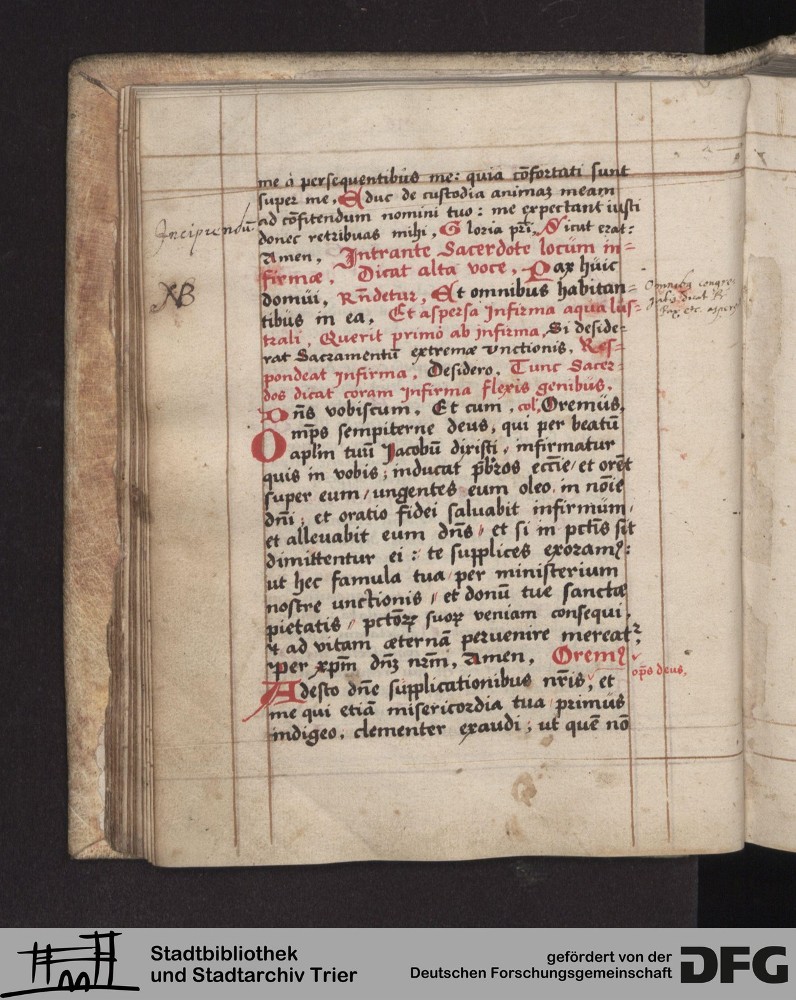 me a persequentibus me: quia cōfortati sunt
super me, Educ de custodia animaȝ meam
ad cōfitendum nomini tuo: me expectant iusti
donec retribuas mihi, Gloria pr̄i, Sicut erat:
Amen, Intrante Sacerdote locum in=
firmæ, Dicat alta voce, Pax huic
domui, Rn̄detur, Et omnibus habitan=
tibus in ea, Et aspersa infirma aqua lus=
trali, Querit primo ab infirma, Si deside=
rat Sacramentū extremæ vnctionis, Res=
pondeat infirma, Desidero, Tunc Sacer=
dos dicat coram infirma flexis genibus,
Dn̄s vobiscum, Et cum, col, Oremus,
Omp̄s sempiterne deus, qui per beatū
aplm̄ tuū Jacobū dixisti, infirmatur
quis in vobis; inducat pb̄ros eccl̄ie, et orēt
super eum, ungentes eum oleo in noīe
dn̄i; et oratio fidei saluabit infirmum,
et alleuabit eum dn̄s, et si in pctīs sit
dimittentur ei: te supplices exoramꝰ:
ut hec famula tua, per ministerium
nostre unctionis, et donū tue sanctæ
pietatis, pctōrꝝ suoꝝ veniam consequi,
et ad vitam æternā peruenire mereatꝰ,
Per xp̄m dn̄ȝ nr̄m, Amen, Oremꝰ
op̄s deus,
Adesto dn̄e supplicationibus nr̄is, et
me qui etiā misericordia tua primus
indigeo, clementer exaudi; ut quē nō
Incipiendū
NB
Omnibꝰ congre
Pax, etc. asper
Stadtbibliothek
und Stadtarchiv Trier
gefördert von der
Deutschen Forschungsgemeinschaft
DFG